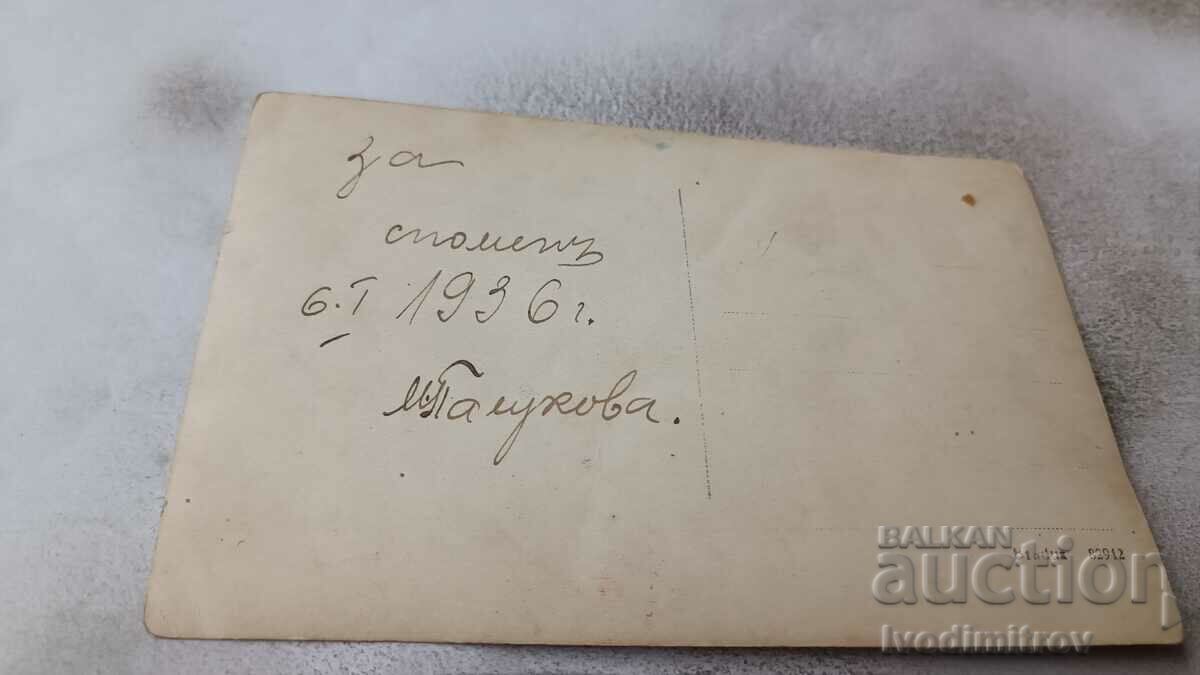 за
споменъ
6.I 1936 г.
М.Палукова.
82912
BALKAN
auction
Ivodimitrov